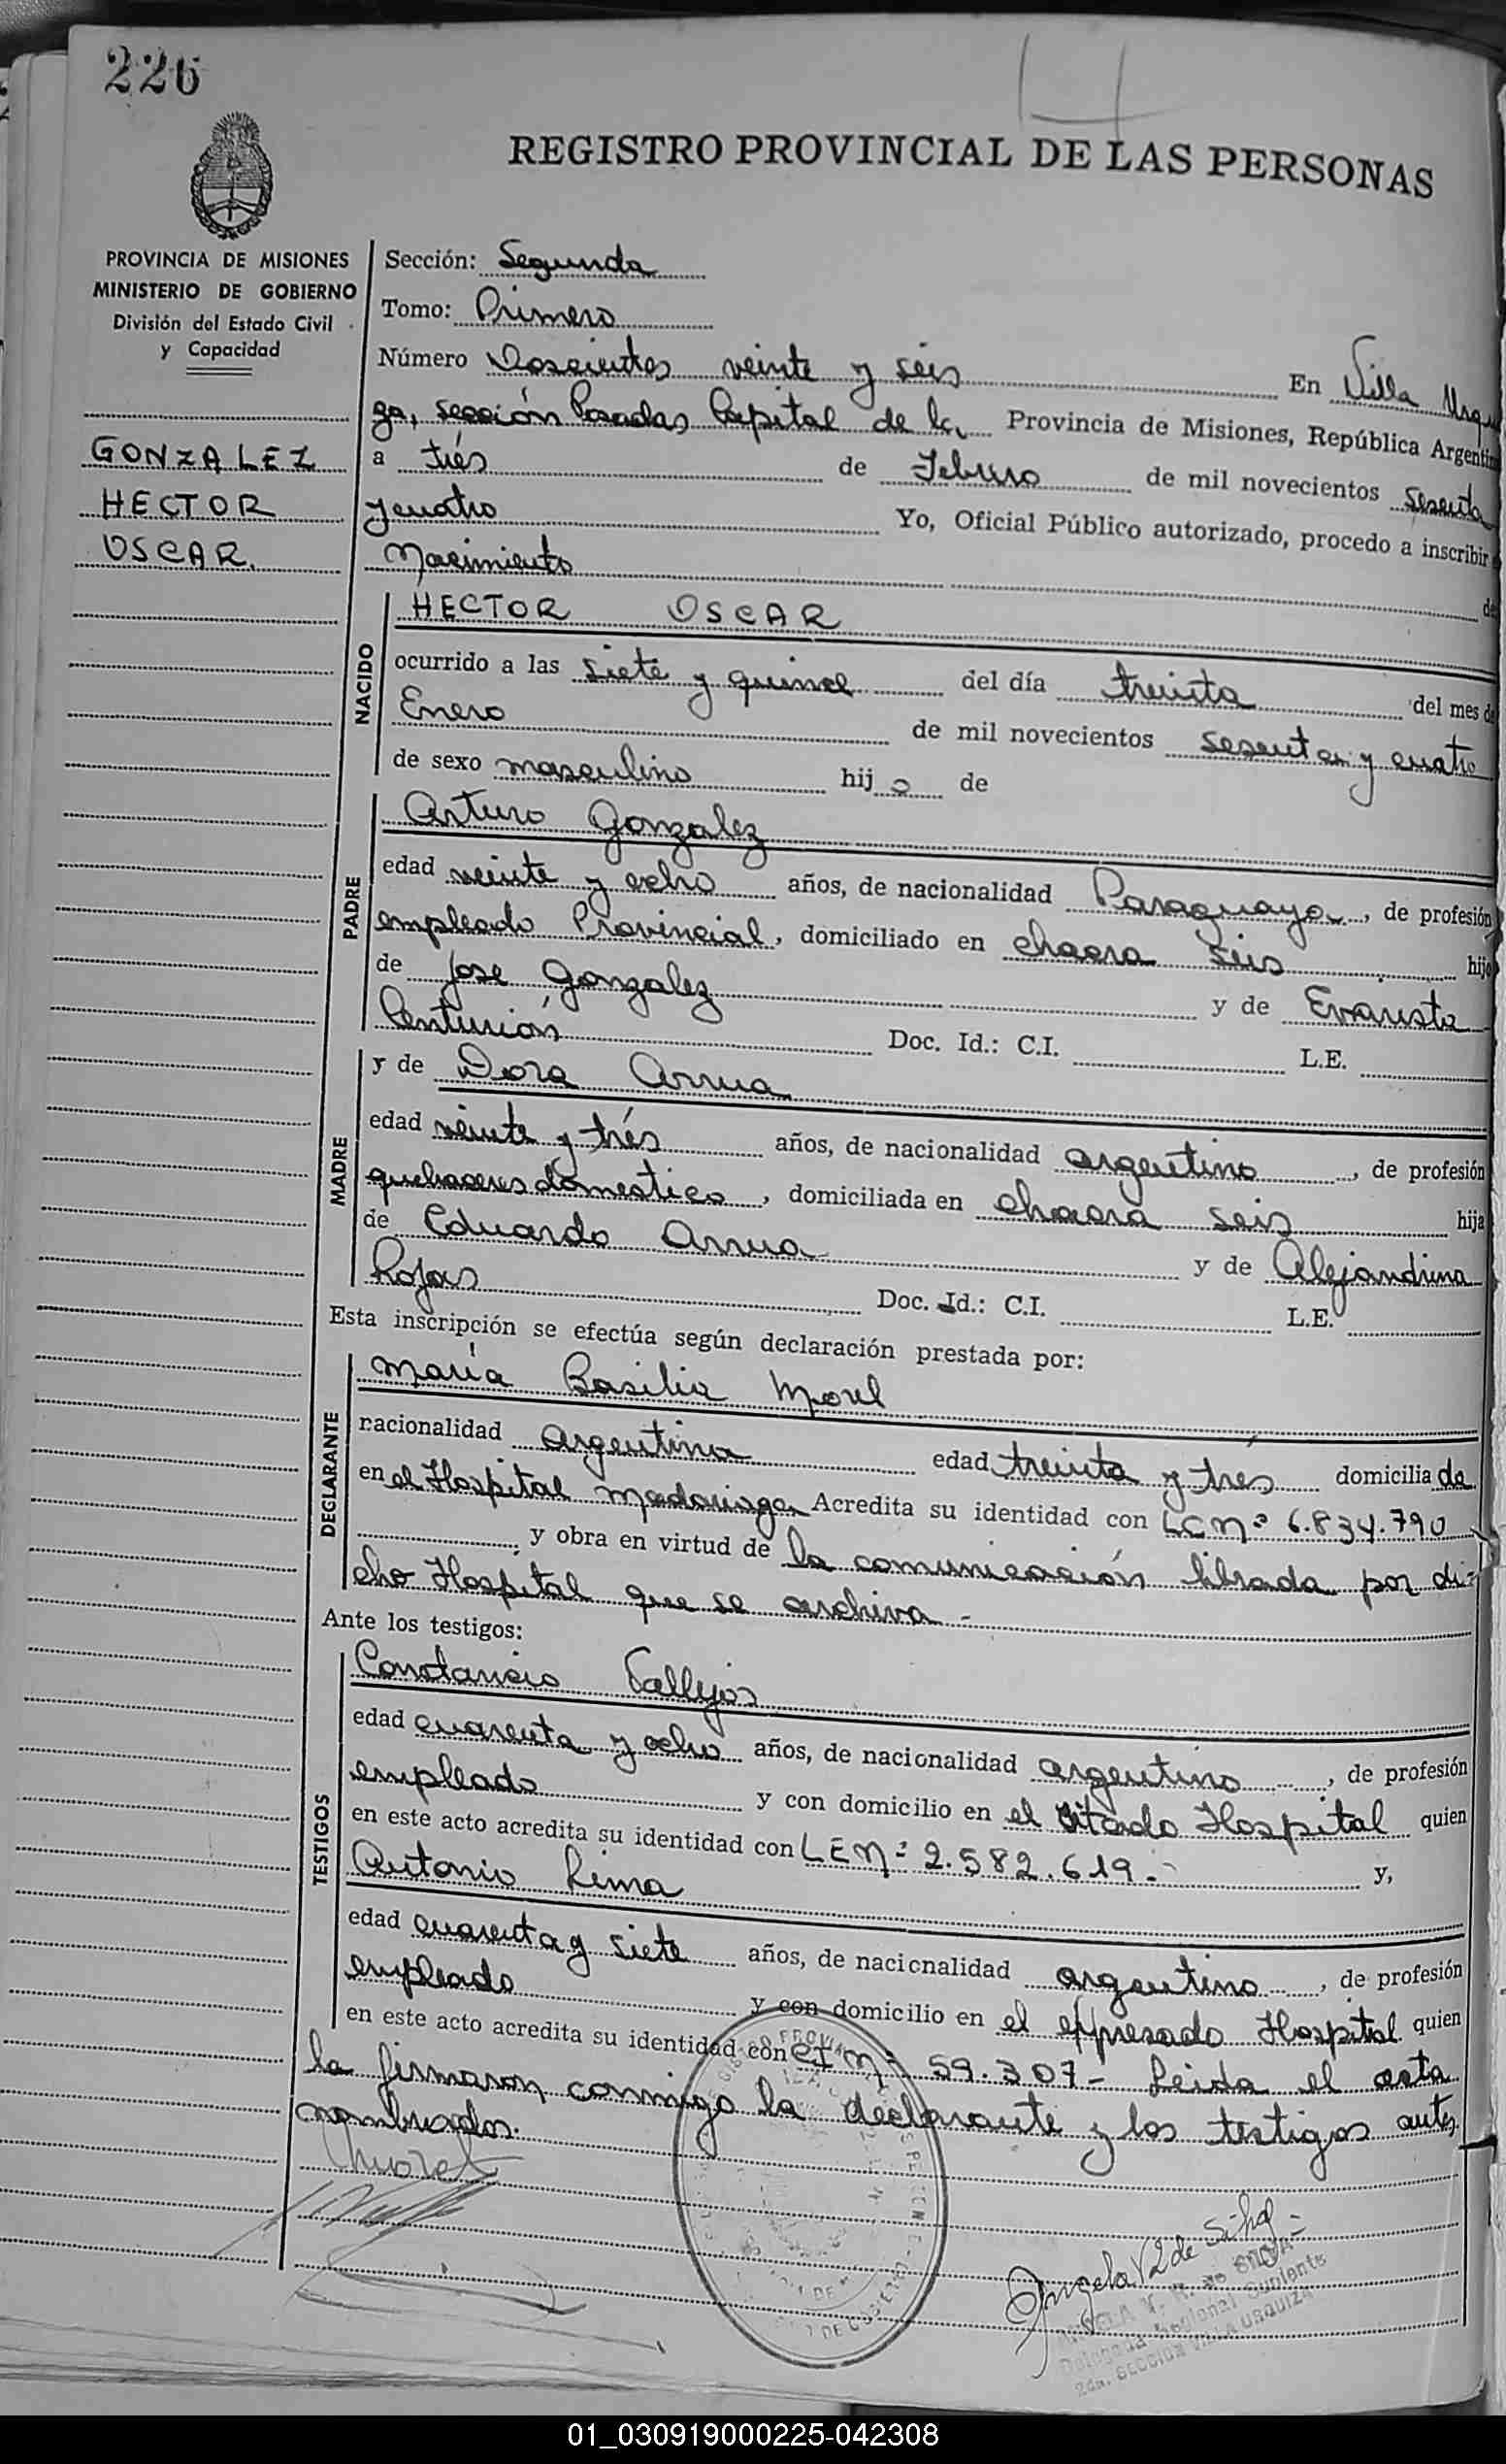 226
REGISTRO PROVINCIAL DE LAS PERSONAS
PROVINCIA DE MISIONES
MINISTERIO DE GOBIERNO
División del Estado Civil
y Capacidad
GONZALEZ
HECTOR
OSCAR.
Sección: Segunda
Tomo: Primero
Número Doscientos veinte y seis En Villa Urqui
za, sección Posadas Capital de la Provincia de Misiones, República Argentina
a trés de Febrero de mil novecientos sesenta
y cuatro Yo, Oficial Público autorizado, procedo a inscribir
Nacimiento de
NACIDO
HECTOR OSCAR
ocurrido a las siete y quince del día treinta del mes de
Enero de mil novecientos sesenta y cuatro
de sexo masculino hijo de
PADRE
Arturo Gonzalez
edad veinte y ocho años, de nacionalidad Paraguaya, de profesión
empleado Provincial, domiciliado en chacra seis hijo
de Jose Gonzalez y de Evarista
Centurión Doc. Id.: C.I. L.E.
MADRE
y de Dora Arrua
edad veinte y trés años, de nacionalidad argentina, de profesión
quehaceres domestico, domiciliada en chacra seis hija
de Eduardo Arrua y de Alejandrina
Rojas Doc. Id.: C.I. L.E.
Esta inscripción se efectúa según declaración prestada por:
DECLARANTE
María Basilia Morel
nacionalidad argentina edad treinta y tres domiciliada
en el Hospital Madariaga Acredita su identidad con LC Nº 6.834.790
y obra en virtud de la comunicación librada por di-
cho Hospital que se archiva.-
Ante los testigos:
TESTIGOS
Constancio Vallejos
edad cuarenta y ocho años, de nacionalidad argentino, de profesión
empleado y con domicilio en el citado Hospital quien
en este acto acredita su identidad con LE Nº 2.582.619.- y,
Antonio Lima
edad cuarenta y siete años, de nacionalidad argentino, de profesión
empleado y con domicilio en el expresado Hospital quien
en este acto acredita su identidad con CI Nº 59.307- Leida el acta
la firmaron conmigo la declarante y los testigos antes
nombrados.
Morel
Angela V R de Silva
ANGELA V. R. de SILVA
Delegada Regional Suplente
2da. SECCION VILLA URQUIZA
01_030919000225-042308